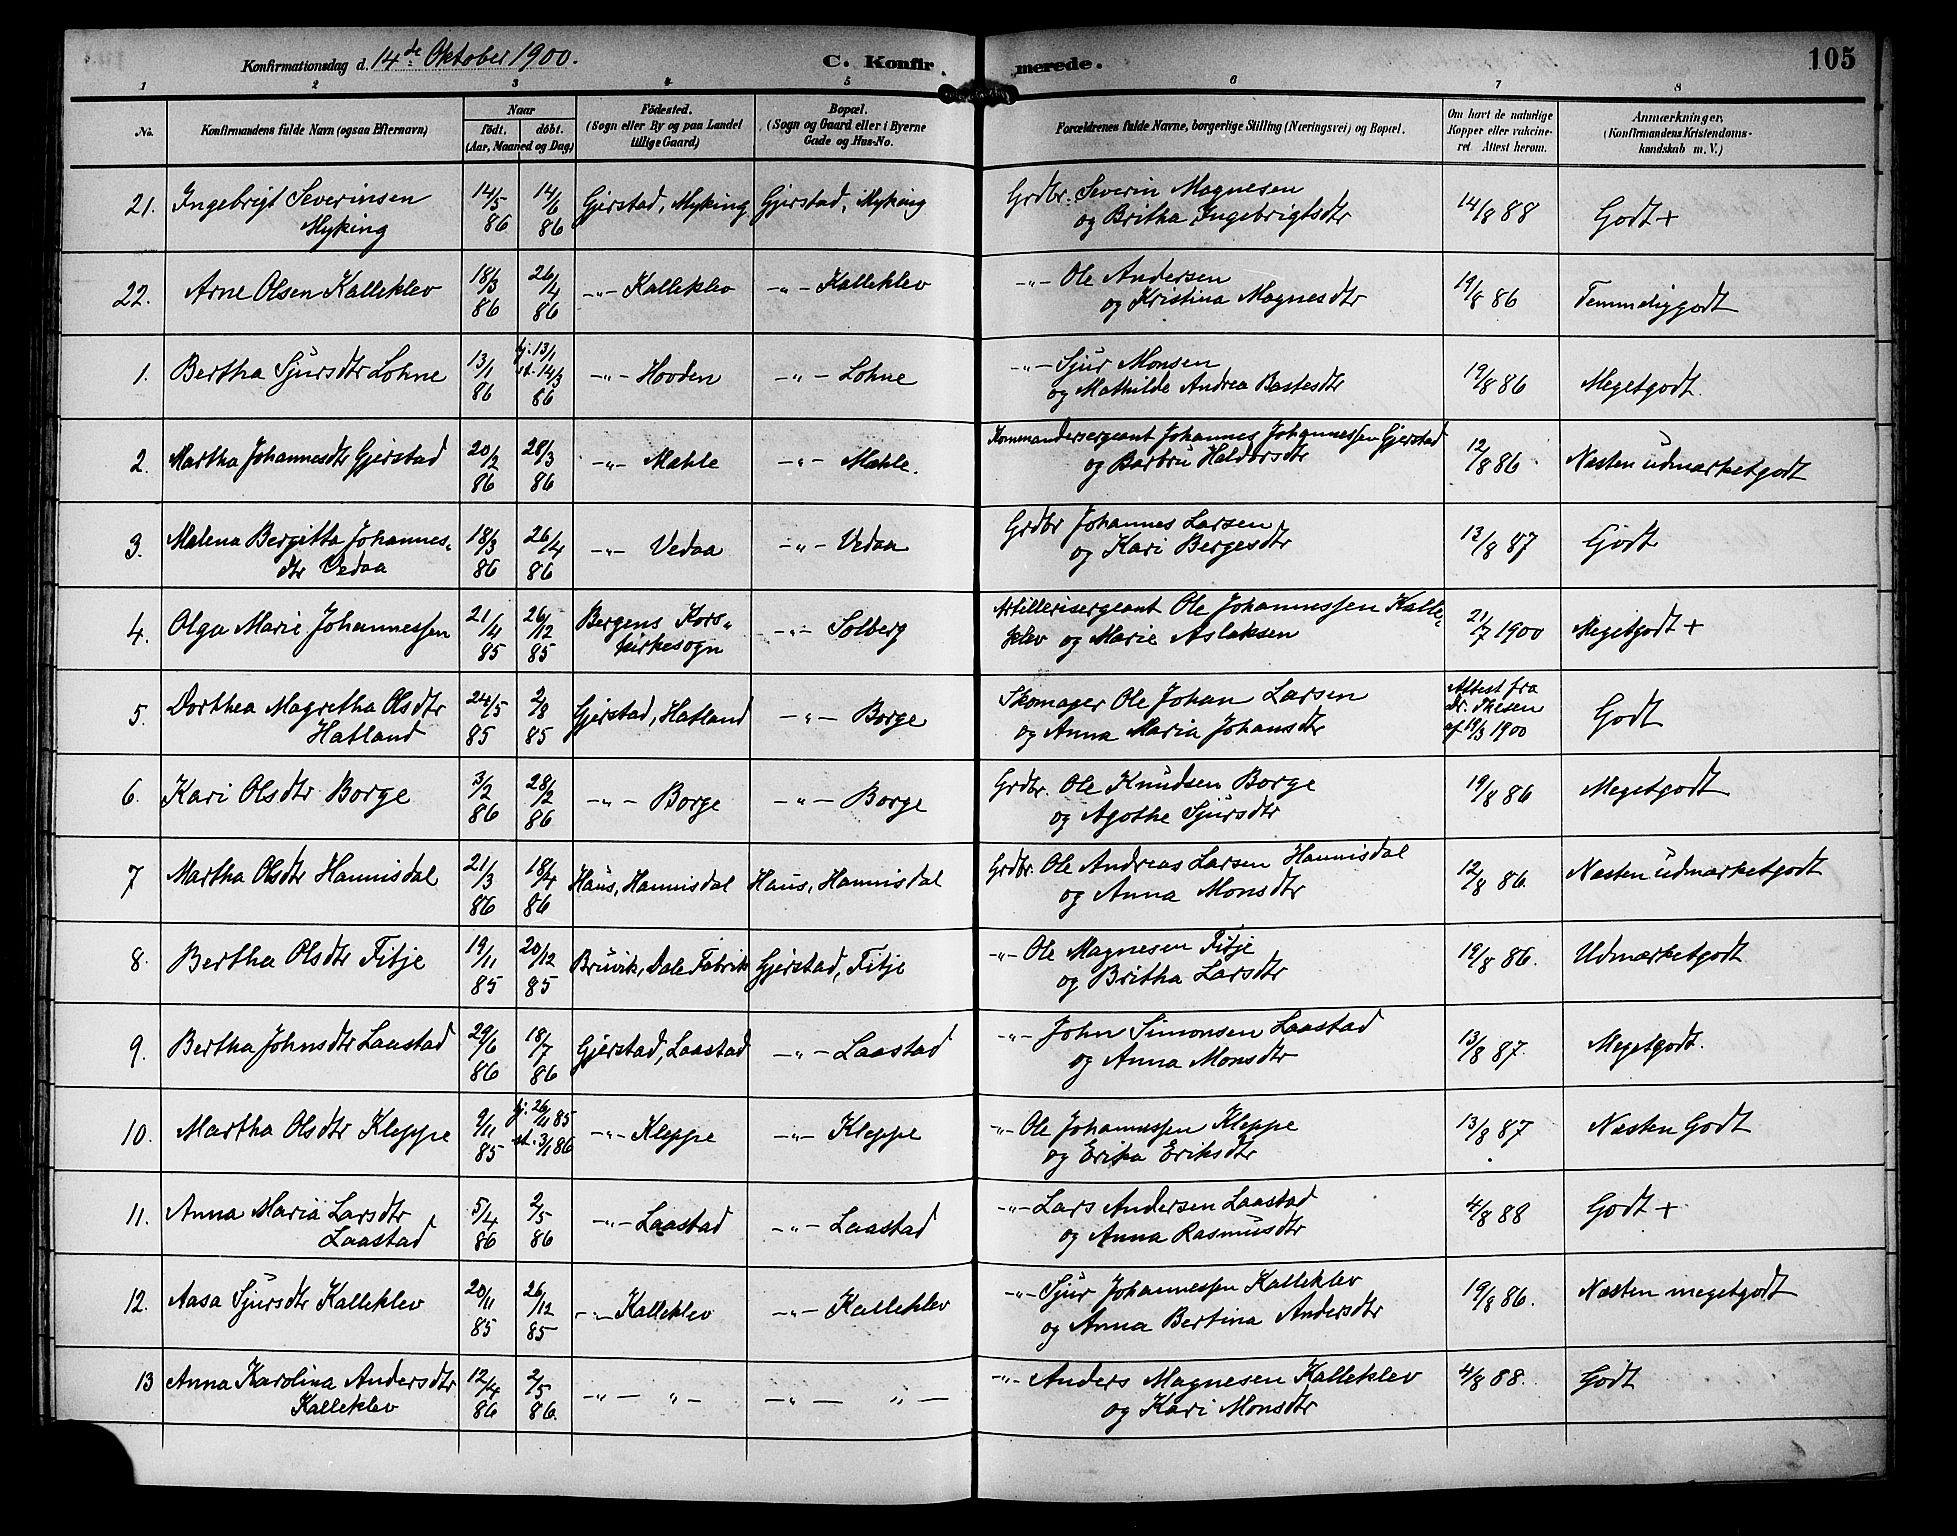 Konfirmationsdag d. 14de Oktober 1900.
C. Konfirmerede.
105
1 2 3 4 5 6 7 8
No.
Konfirmandens fulde Navn (ogsaa Efternavn)
Naar
født. døbt.
(Aar, Maaned og Dag)
Fødested.
(Sogn eller By og paa Landet
tillige Gaard)
Bopæl.
(Sogn og Gaard eller i Byerne
Gade og Hus-No.
Forældrenes fulde Navne, borgerlige Stilling (Næringsvei) og Bopæl.
Om havt de naturlige
Kopper eller vakcine-
ret Attest herom.
Anmærkninger,
(Konfirmandens Kristendoms-
kundskab m. V.)
21. Ingebrigt Severinsen Myking 14/5 86 14/6 86 Gjerstad, Myking Gjerstad, Myking Grdbr. Severin Magnesen
og Britha Ingebrigtsdtr 14/8 88 Godt +
22. Arne Olsen Kalleklev 18/3 86 26/4 86 -"- Kalleklev -"- Kalleklev -"- Ole Andersen
og Kristina Magnesdtr 19/8 86 Temmeliggodt
1. Bertha Sjursdtr Lohne 13/1 86 hj. 13/1 st. 14/3 86 -"- Hovden -"- Lohne -"- Sjur Monsen
og Mathilde Andrea Bastesdtr 19/8 86 Megetgodt.
2. Martha Johannesdtr Gjerstad 20/2 86 28/3 86 -"- Mæhle -"- Mæhle. Kommandersergeant Johannes Johannessen Gjerstad
og Barbru Haldorsdtr 12/8 86 Næsten udmærketgodt
3. Malena Bergitta Johannes-
dtr Vedaa 18/3 86 26/4 86 -"- Vedaa -"- Vedaa Grdbr Johannes Larsen
og Kari Bergesdtr 13/8 87 Godt
4. Olga Marie Johannessen 21/4 85 26/12 85 Bergens Kors-
kirkesogn -"- Solberg Artillerisergeant Ole Johannessen Kalle-
klev og Marie Aslaksen 21/7 1900 Megetgodt +
5. Dorthea Magretha Olsdtr
Hatland 24/5 85 2/8 85 Gjerstad, Hatland -"- Borge Skomager Ole Johan Larsen
og Anna Maria Johansdtr Attest fra
Dr. Thesen
af 19/3 1900 Godt
6. Kari Olsdtr Borge 3/2 86 28/2 86 -"- Borge -"- Borge Grdbr. Ole Knudsen Borge
og Agothe Sjursdtr 19/8 86 Megetgodt
7 Martha Olsdtr Hannisdal 21/3 86 18/4 86 Haus, Hannisdal Haus, Hannisdal Grdbr. Ole Andreas Larsen Hannisdal
og Anna Monsdtr 12/8 86. Næsten udmærketgodt
8. Bertha Olsdtr Fitje 19/11 85 20/12 85 Bruvik, Dale Fabrik Gjerstad, Fitje -"- Ole Magnesen Fitje
og Britha Larsdtr 19/8 86. Udmærketgodt
9. Bertha Johnsdtr Laastad 29/6 86 18/7 86 Gjerstad, Laastad -"- Laastad -"- John Simonsen Laastad
og Anna Monsdtr 13/8 87. Megetgodt.
10. Martha Olsdtr Kleppe 9/11 85 hj. 26/11 85 st. 3/1 86 -"- Kleppe -"- Kleppe -"- Ole Johannessen Kleppe
og Erika Eriksdtr 13/8 87 Næsten Godt
11. Anna Maria Larsdtr
Laastad 5/4 86 2/5 86 -"- Laastad -"- Laastad -"- Lars Andersen Laastad
og Anna Rasmusdtr 4/8 88 Godt +
12. Aasa Sjursdtr Kalleklev 20/11 85 26/12 85 -"- Kalleklev -"- Kalleklev -"- Sjur Johannessen Kalleklev
og Anna Bertina Andersdtr 19/8 86. Næsten megetgodt
13 Anna Karolina Andersdtr
Kalleklev 12/4 86 2/5 86. -"- "- -"- "- -"- Anders Magnesen Kalleklev
og Kari Monsdtr 4/8 88. Godt